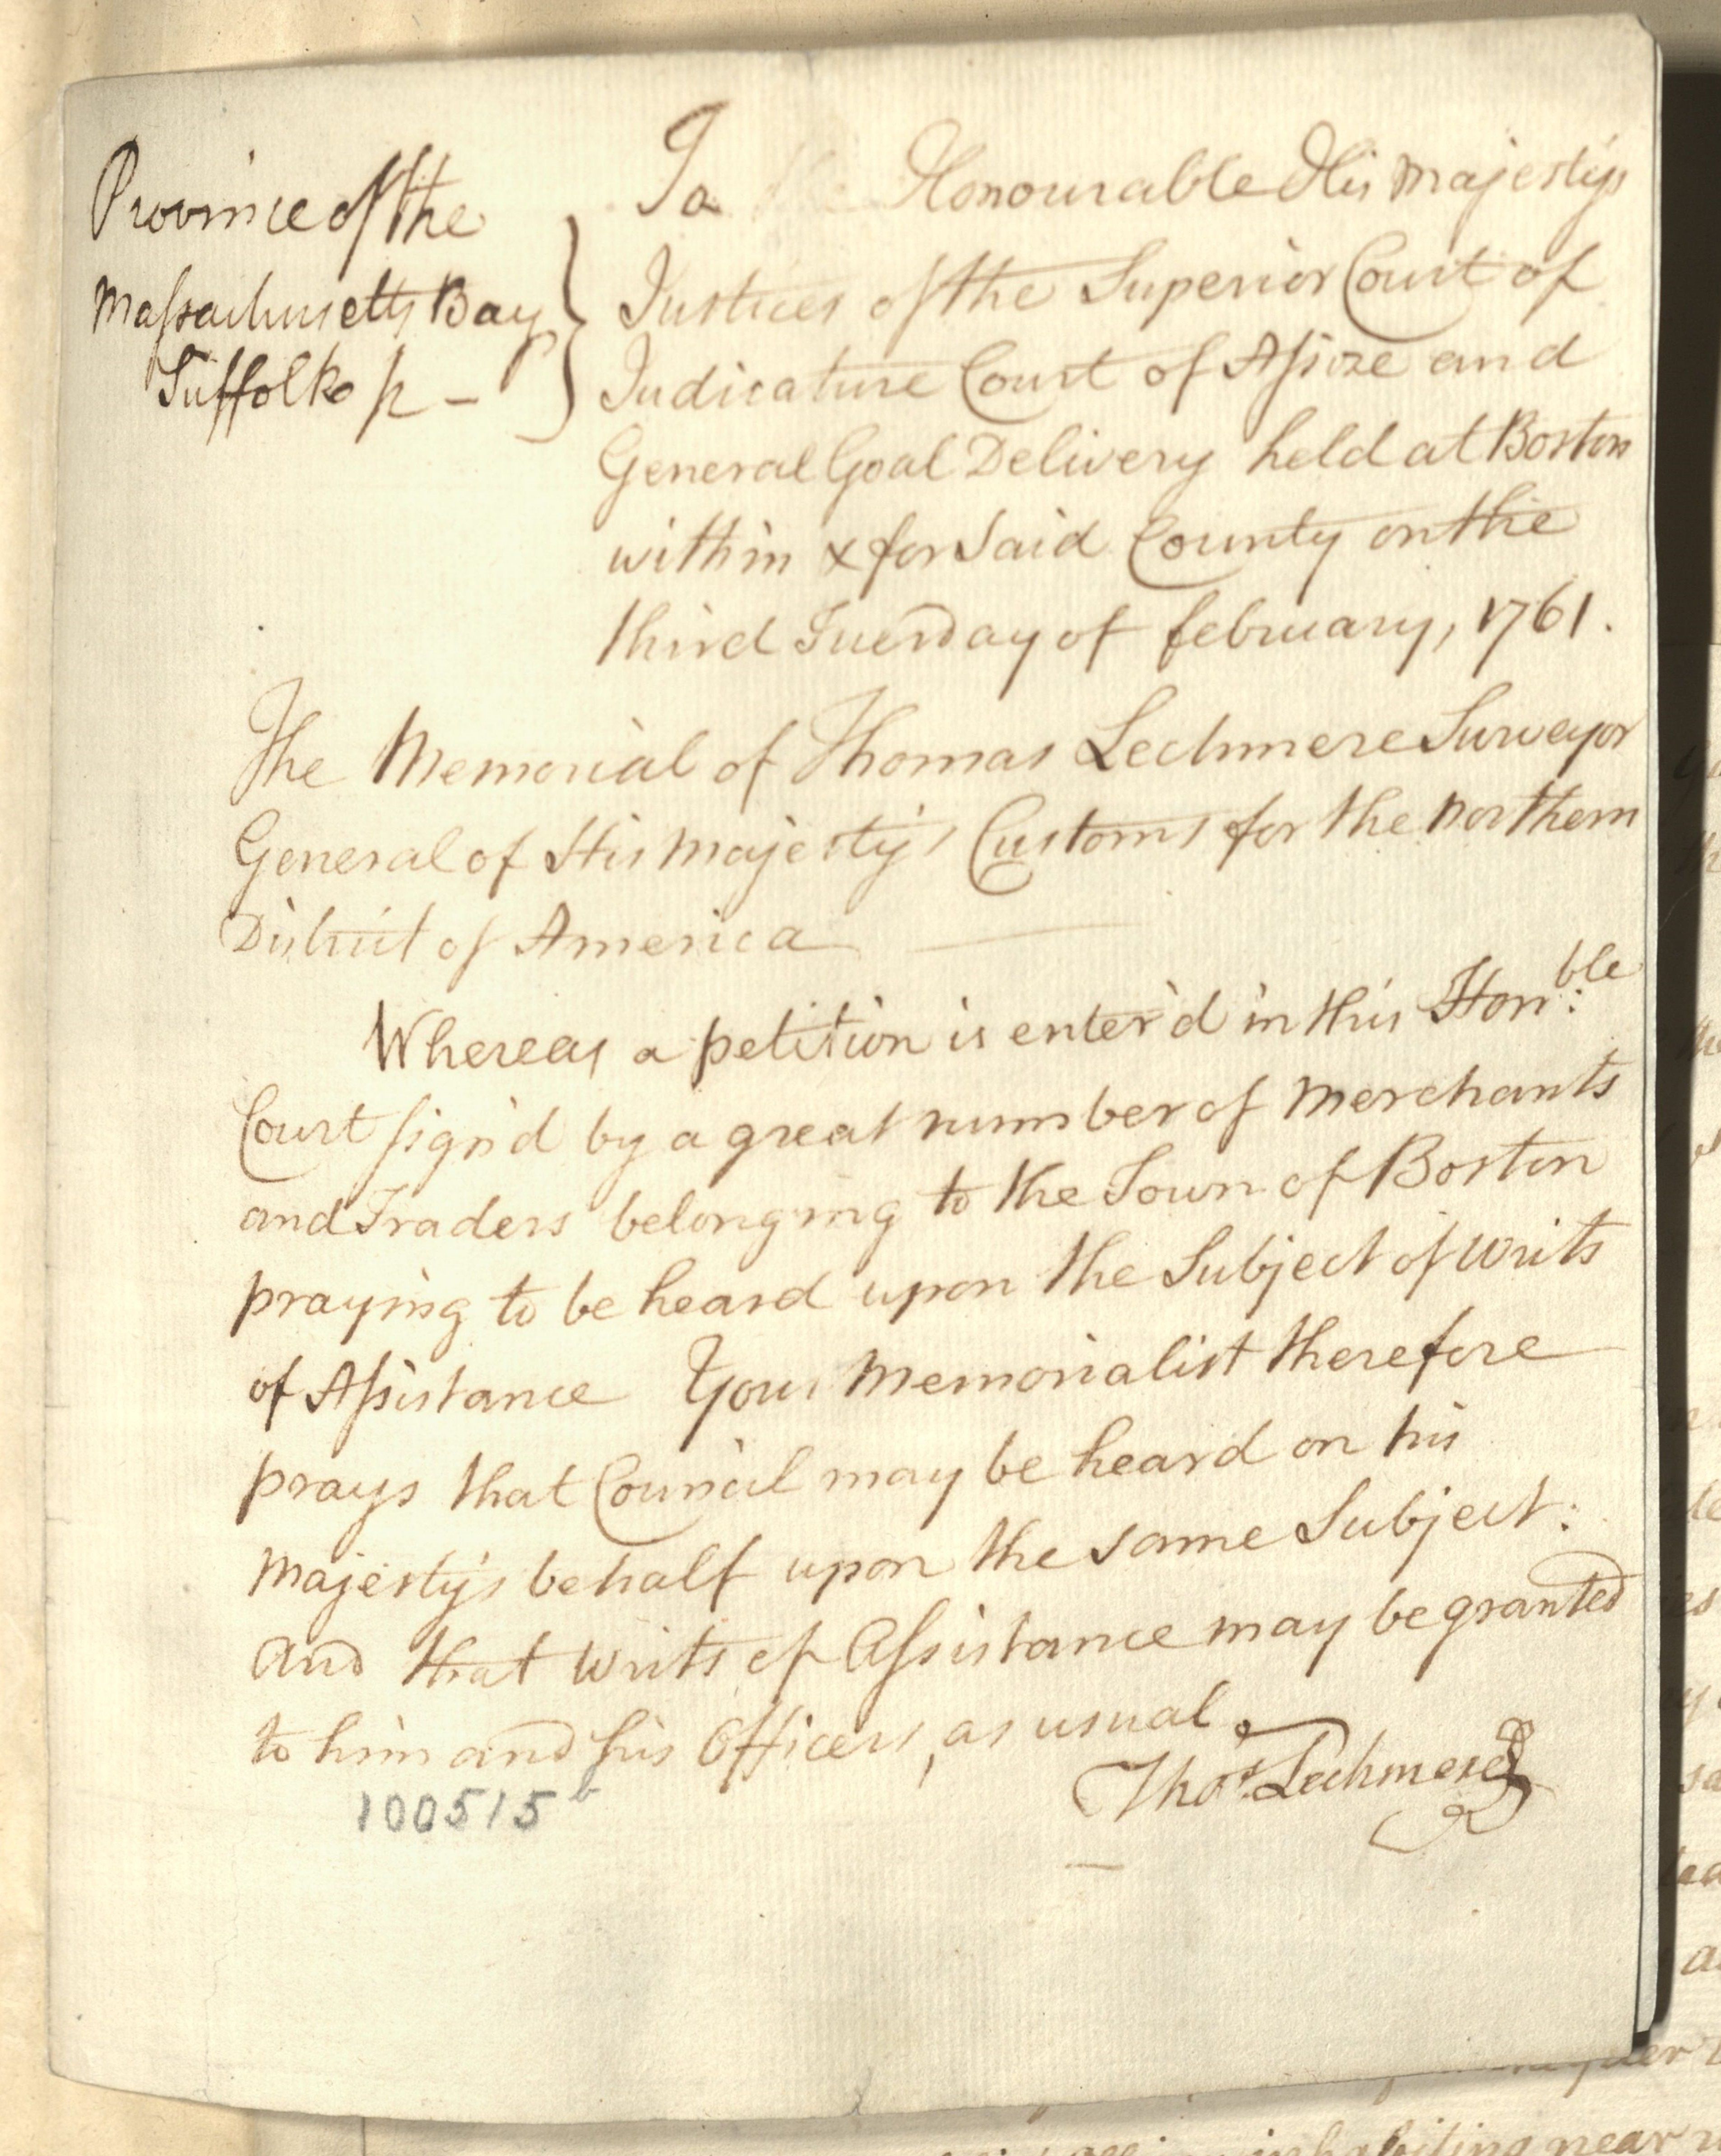 Province of the
Massachusetts Bay
Suffolk ss –
To the Honourable His Majestys
Justices of the Superior Court of
Judicature Court of Assize and
General Goal Delivery held at Boston
within & for said County on the
third Tuesday of february, 1761.
The Memorial of Thomas Lechmere Surveyor
General of His Majesty's Customs for the Northern
District of America
Whereas a petition is enter'd in this Hon:ble
Court sign'd by a great number of Merchants
and Traders belonging to the Town of Boston
praying to be heard upon the Subject of Writs
of Assistance Your Memorialist therefore
prays that Council may be heard on his
Majesty's behalf upon the same Subject:
And that Writs of Assistance may be granted
to him and his Officers, as usual.
Thos. Lechmere
100515 b